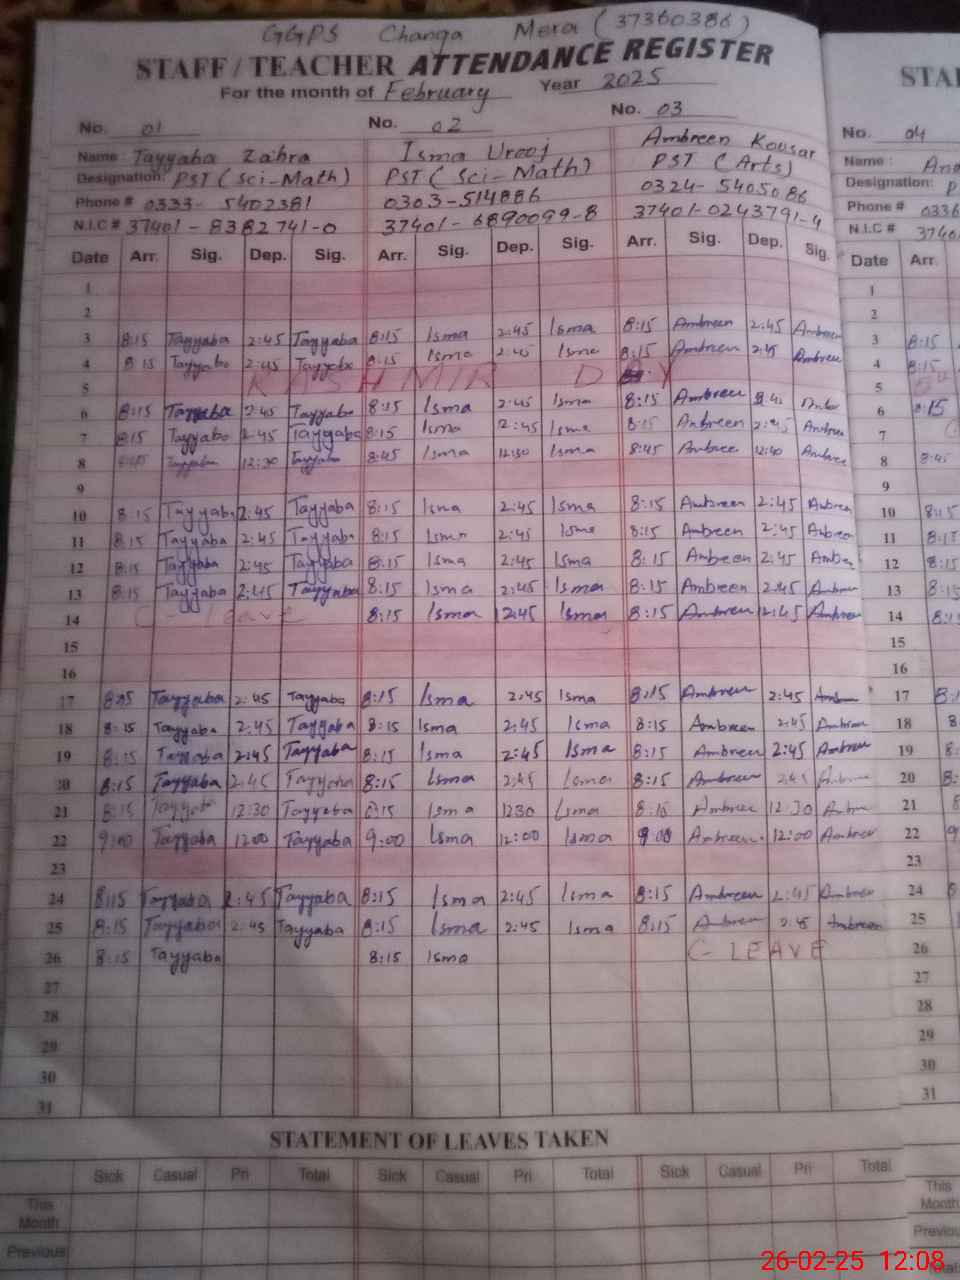 GGPS Changa Mera (37360386)
STAFF / TEACHER ATTENDANCE REGISTER
For the month of February Year 2025
No. 01 No. 02 No. 03 No. 04
Name: Tayyaba Zahra Isma Urooj Ambreen Kousar Name:
Designation: PST (Sci-Math) PST (Sci-Math) PST (Arts) Designation: P
Phone # 0333-5402381 0303-514886 0324-5405086 Phone # 0336
N.I.C # 37401-8382741-0 37401-6890099-8 37401-0243791-4 N.I.C # 3740
Date Arr. Sig. Dep. Sig. Arr. Sig. Dep. Sig. Arr. Sig. Dep. Sig. Date Arr.
1 1
2 2
3 8:15 Tayyaba 2:45 Tayyaba 8:15 Isma 2:45 Isma 8:15 Ambreen 2:45 Ambreen 3 8:15
4 8:15 Tayyaba 2:45 Tayyaba 8:15 Isma 2:45 Isma 8:15 Ambreen 2:45 Ambreen 4 8:15
5 KASHMIR DAY 5
6 8:15 Tayyaba 2:45 Tayyaba 8:15 Isma 2:45 Isma 8:15 Ambreen 2:45 6 8:15
7 8:15 Tayyaba 2:45 Tayyaba 8:15 Isma 2:45 Isma 8:15 Ambreen 2:45 Ambreen 7
8 8:45 Tayyaba 12:30 Tayyaba 8:45 Isma 12:30 Isma 8:45 Ambreen Ambreen 8 8:45
9 9
10 8:15 Tayyaba 2:45 Tayyaba 8:15 Isma 2:45 Isma 8:15 Ambreen 2:45 Ambreen 10 8:15
11 8:15 Tayyaba 2:45 Tayyaba 8:15 Isma 2:45 Isma 8:15 Ambreen 2:45 Ambreen 11 8:15
12 8:15 Tayyaba 2:45 Tayyaba 8:15 Isma 2:45 Isma 8:15 Ambreen 2:45 Ambreen 12 8:15
13 8:15 Tayyaba 2:45 Tayyaba 8:15 Isma 2:45 Isma 8:15 Ambreen 2:45 Ambreen 13 8:15
14 C-leave 8:15 Isma 12:45 Isma 8:15 Ambreen 12:45 Ambreen 14 8:1
15 15
16 16
17 8:15 Tayyaba 2:45 Tayyaba 8:15 Isma 2:45 Isma 8:15 Ambreen 2:45 Ambreen 17 8:1
18 8:15 Tayyaba 2:45 Tayyaba 8:15 Isma 2:45 Isma 8:15 Ambreen 2:45 Ambreen 18 8
19 8:15 Tayyaba 2:45 Tayyaba 8:15 Isma 2:45 Isma 8:15 Ambreen 2:45 Ambreen 19 8:
20 8:15 Tayyaba 2:45 Tayyaba 8:15 Isma 2:45 Isma 8:15 Ambreen 2:45 Ambreen 20 8:
21 8:15 Tayyaba 12:30 Tayyaba 8:15 Isma 1230 Isma 8:15 Ambreen 12:30 21 8
22 9:00 Tayyaba 12:00 Tayyaba 9:00 Isma 12:00 Isma 9:00 Ambreen 12:00 Ambreen 22 9
23 23
24 8:15 Tayyaba 2:45 Tayyaba 8:15 Isma 2:45 Isma 8:15 Ambreen 2:45 Ambreen 24 8
25 8:15 Tayyaba 2:45 Tayyaba 8:15 Isma 2:45 Isma 8:15 Ambreen 2:45 Ambreen 25 8
26 8:15 Tayyaba 8:15 Isma C-LEAVE 26
27 27
28 28
29 29
30 30
31 31
STATEMENT OF LEAVES TAKEN
Sick Casual Pri Total Sick Casual Pri Total Sick Casual Pri Total
This Month This Month
Previous Previous
Total
26-02-25 12:08